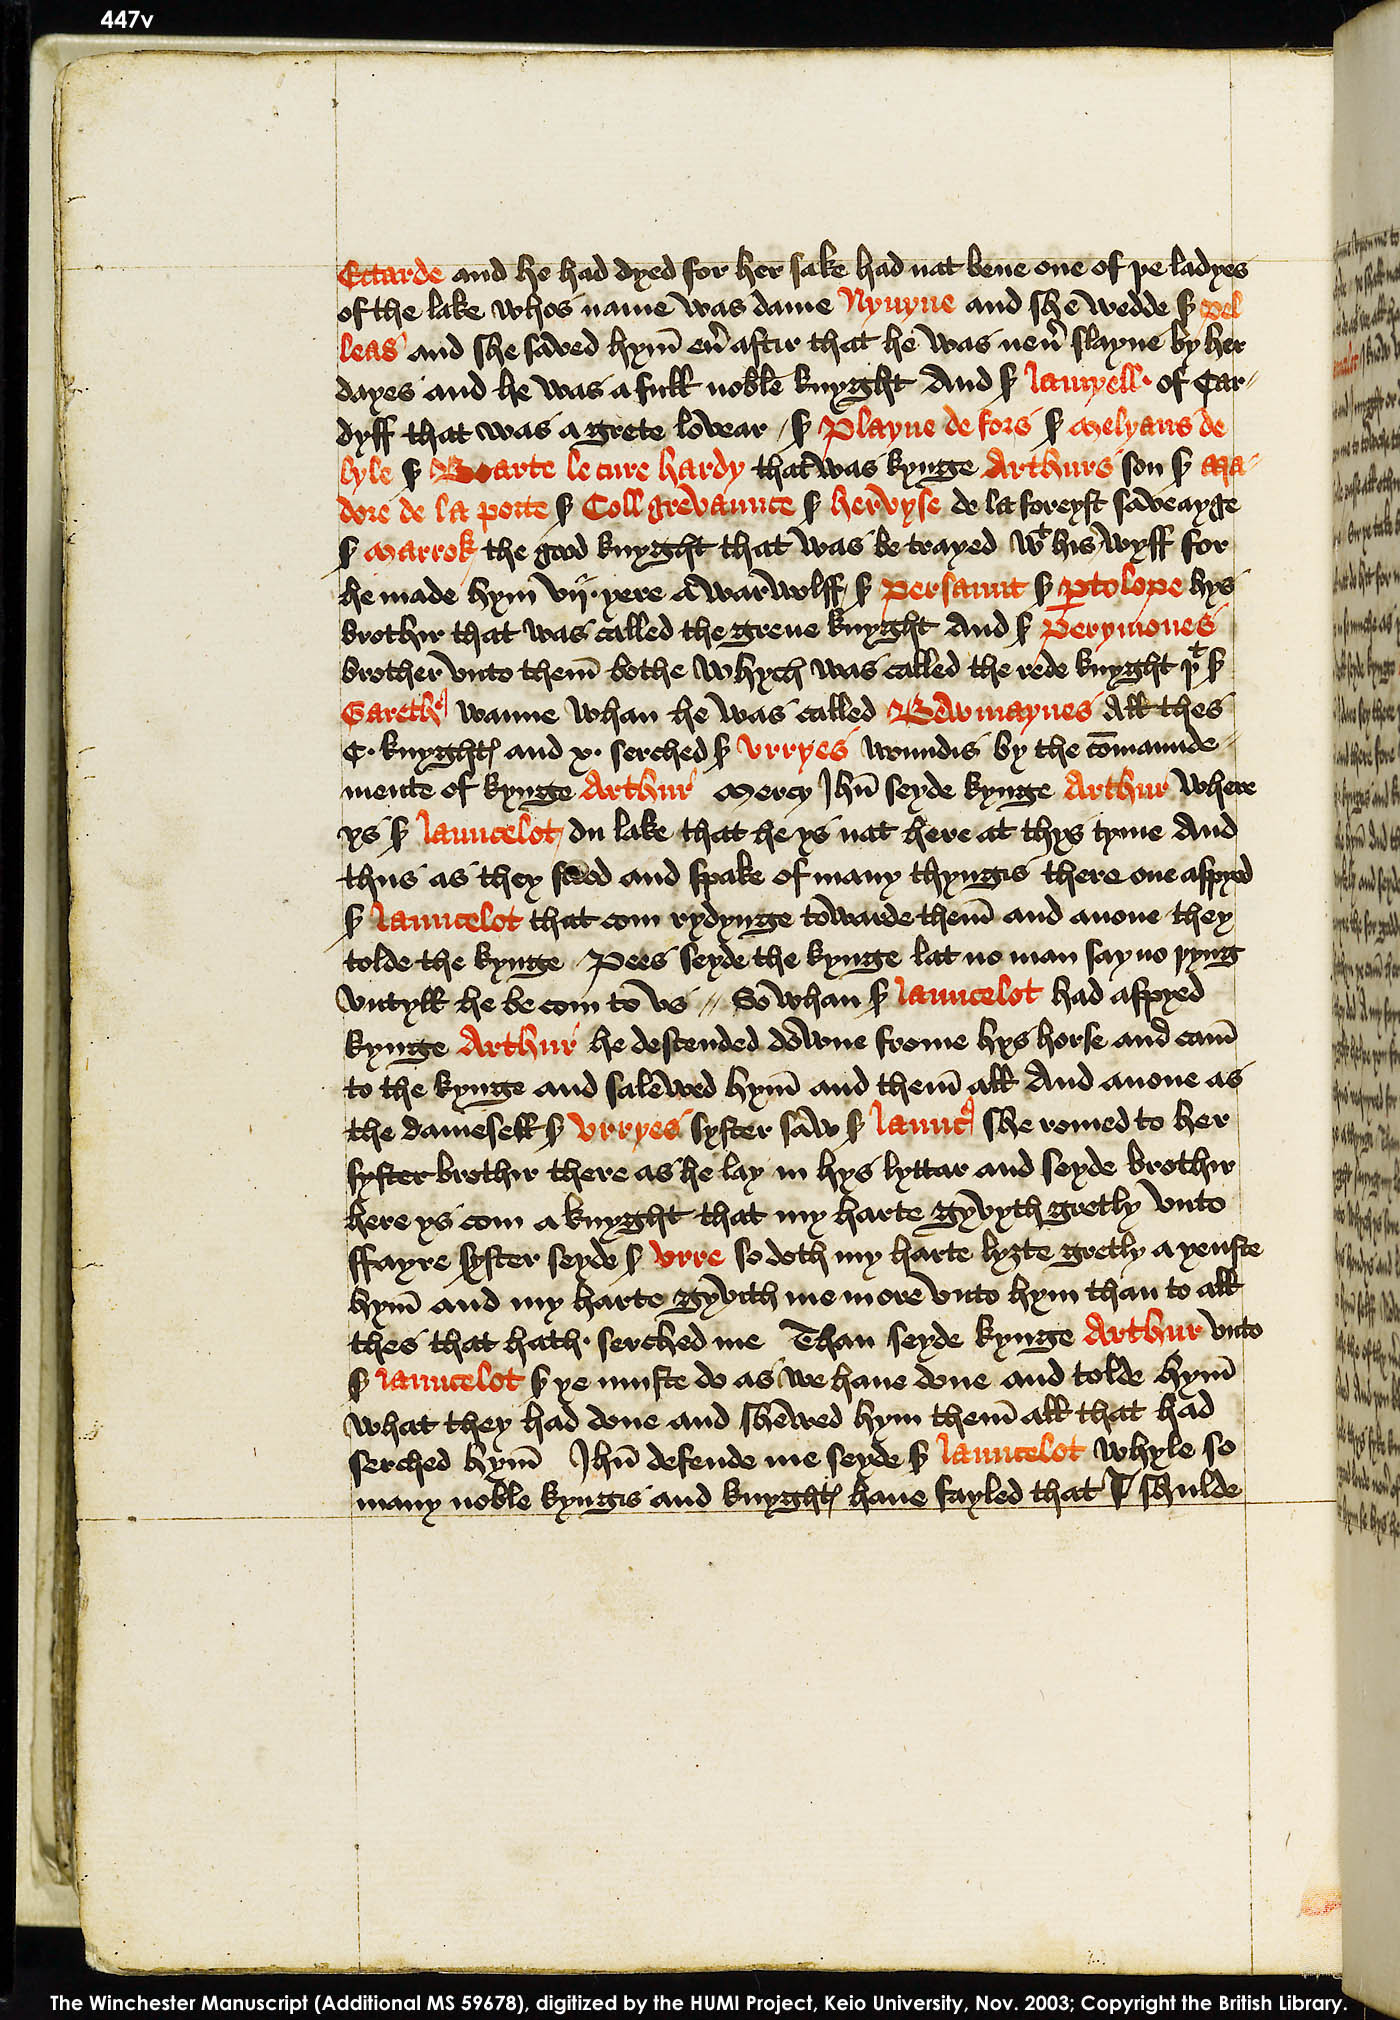 447v
Ettarde and he had dyed for her sake had nat bene one of þe ladyes
of the lake whos name was dame Nynyue and she wedde sʳ Pel
leas and she saved hym̄ eu͛ aftir that he was neu͛ slayne by her
dayes and he was a full noble knyght And sʳ lamyell · of Car⸗
dyff that was a grete lovear / sʳ Playne de fors sʳ Melyans de
lyle sʳ Boarte le cure hardy that was kynge Arthurs son sʳ Ma⸗
dore de la porte sʳ Collgrevaunce sʳ hervyse de la foreyst saveayge
sʳ Marrok the good knyght that was be trayed wᵗ his wyff for
he made hym vij · yere a warwolff / sʳ Persaunt sʳ P̱tolope hys
brothir that was called the grene knyght And sʳ Perymones
brother vnto them̄ bothe whych was called the rede knyght þᵗ sʳ
Garethꝰ wanne whan he was called Bewmaynes All thes
C · knyghtꝭ and x · serched sʳ vrryes woundis by the co̅maunde⸗
mente of kynge Arthur Mercy Jhu̅ seyde kynge Arthur where
ys sʳ launcelot du lake that he ys nat here at thys tyme And
thus as they stood and spake of many thyngis there one aspyed
sʳ launcelot that com rydynge towarde them̄ and anone they
tolde the kynge / Pees seyde the kynge lat no man say no þyng
vntyll he be com to vs // So whan sʳ launcelot had aspyed
kynge Arthur he descended downe frome hys horse and cam̄
to the kynge and salewed hym̄ and them̄ all And anone as
the damesell sʳ vrryes syster saw sʳ launcꝰ she romed to her
syster brothir there as he lay in hys lyttar and seyde brothir
here ys com a knyght that my harte gyvyth gretly vnto
ffayre syster seyde sʳ vrre so doth my harte lyȝte gretly a yenste
hym̄ and my harte gyvith me more vnto hym than to all
thes that hath · serched me Than seyde kynge Arthur vnto
sʳ launcelot sʳ ye muste do as we haue done and tolde hym̄
what they had done and shewed hym them̄ all that had
serched hym̄ Jhu̅ defende me seyde sʳ launcelot whyle so
many noble kyngis and knyghtꝭ haue fayled that I shulde
The Winchester Manuscript (Additional MS 59678), digitized by the HUMI Project, Keio University, Nov. 2003; Copyright the British Library.